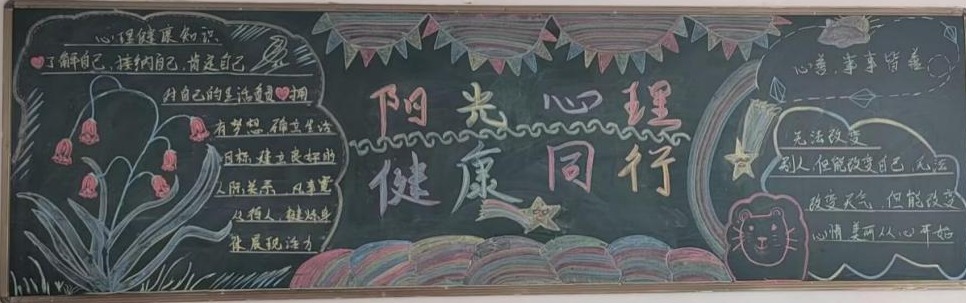 心理健康知识
了解自己、接纳自己、肯定自己
对自己的生活负责 拥
有梦想 确立生活
目标 建立良好的
人际关系 凡事宽
以待人 锻炼身
体 展现活力
阳光心理
健康同行
心善,事事皆善
无法改变
别人,但能改变自己,无法
改变天气,但能改变
心情 美丽从心开始